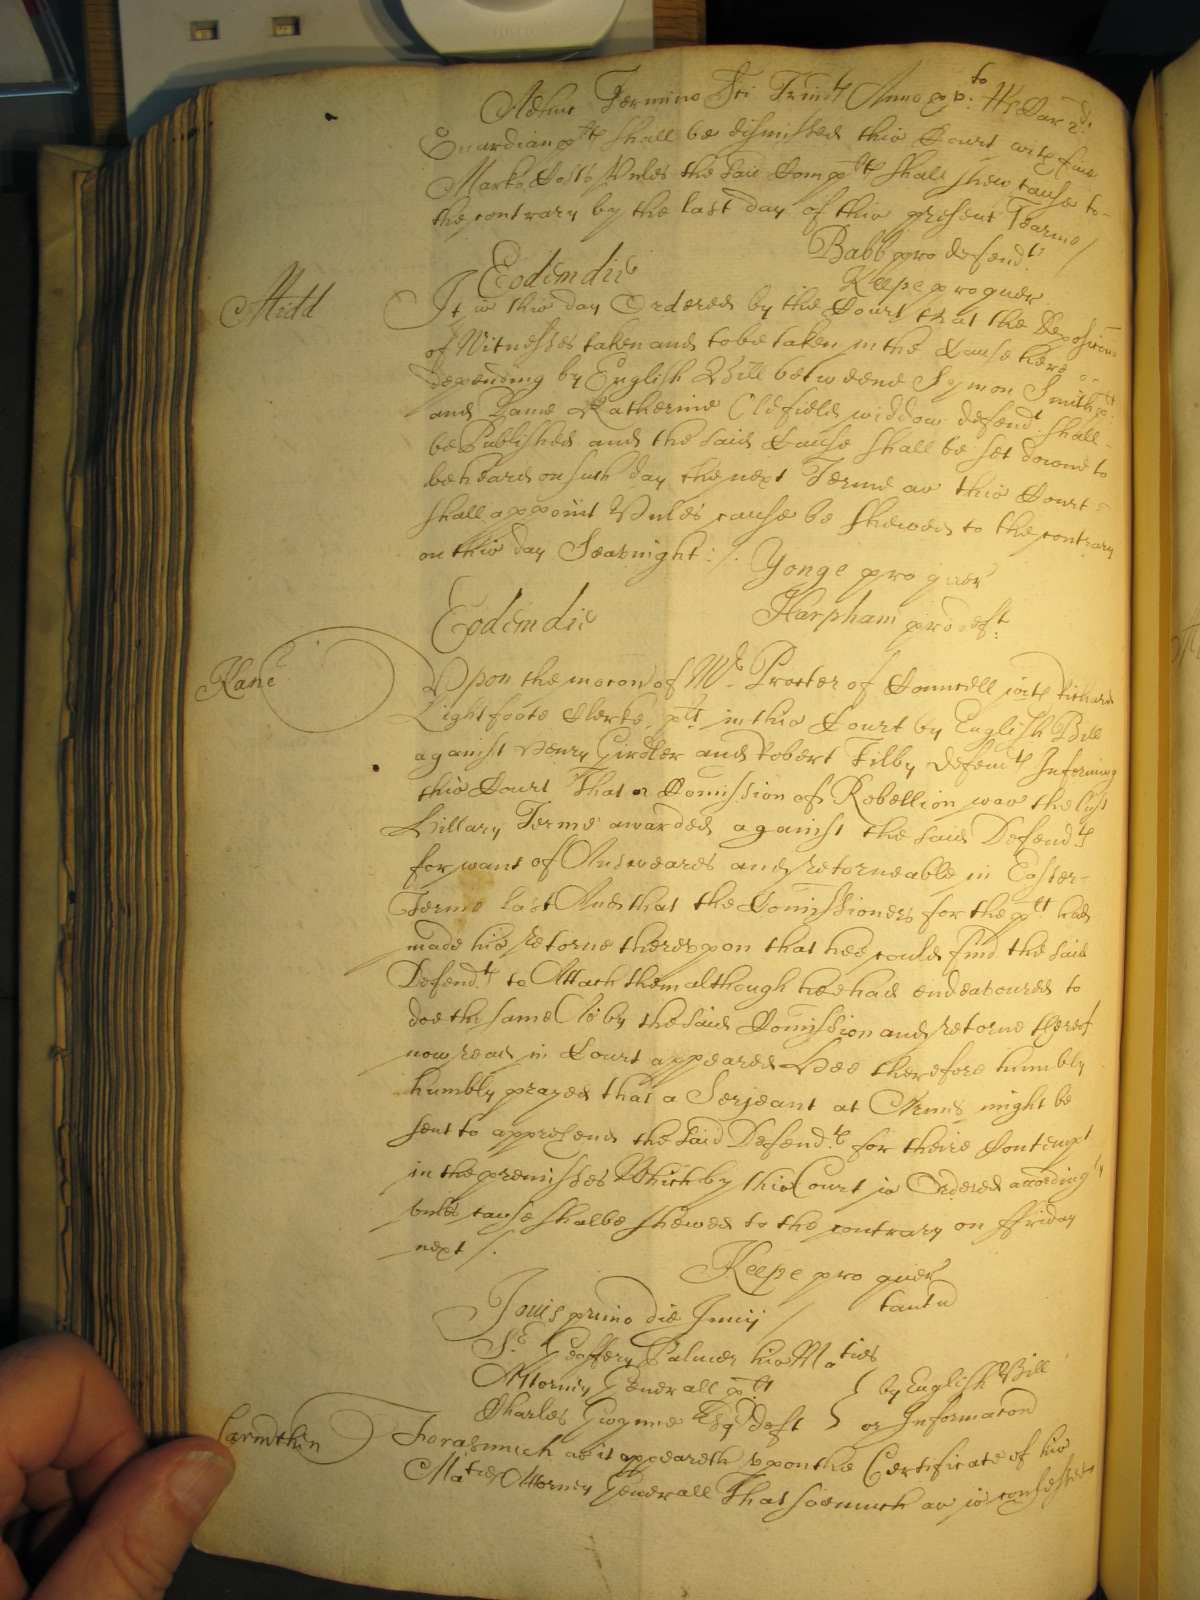 Adhuc Termino Sci Trinit Anno xv:to Rs Car 2di
Guardian ptt shall be dismissed this Court with five
Marks Costs Unles the said Compltt shall shew cause to
the contrary by the last day of this present Tearme /
Babb pro defendt
Eodem die
Keepe pro quer
Midd
It is this day Ordered by the Court that the Deposicions
of Witnesses taken and to be taken in the Cause here
depending by English Bill betweene Symon Smith ptt
and Dame Katherine Oldfield widdow defendt shall
be Published and the said Cause shall be set downe to
be heard on such day the next Terme as this Court
shall appoint Unles cause be shewed to the contrary
on this day Seavnight : /. Yonge pro quer
Eodem die
Harpham pro deft:
Kanc
Upon the mocon of Mr Procter of Councell with Richard
Lightfoote Clerke ptt in this Court by English Bill
against Henry Girdler and Robert Filby Defendts Informing
this Court That a Comission of Rebellion was the last
Hillary Terme awarded against the said Defendts
for want of Answeares and retorneable in Easter
Terme last And that the Comissioners for the ptt had
made his retorne thereupon that hee could find the said
Defendts to Attach them although hee had endeavoured to
doe the same As by the said Comission and retorne thereof
now read in Court appeared Hee therefore humbly
humbly prayed that a Serjeant at Armes might be
sent to apprehend the said Defendts for theire Contempt
in the premisses Which by this Court is Ordered accordingly
unles cause shalbe shewed to the contrary on ffriday
next /.
Keepe pro quer
tantu
Jovis primo die Junij /
Sr Geoffery Palmer his Maties
Attorney Generall ptt } by English Bill
Charles Gwynne Esqr deft } or Informacon
Carmthen
Forasmuch as it appeareth Upon the Certificate of his
Maties Attorney Generall That soe much as is confessed